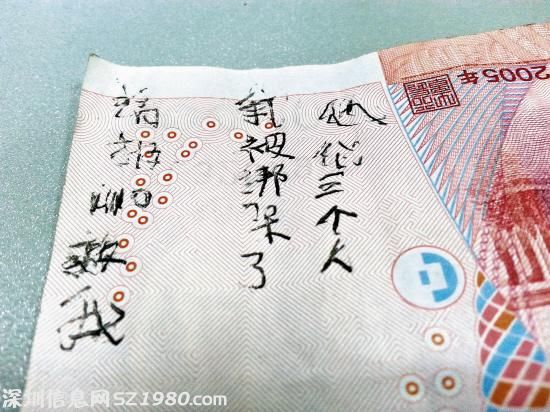 2005年
他们三个人
我被绑架了
请救我
深圳信息网SZ1980.com